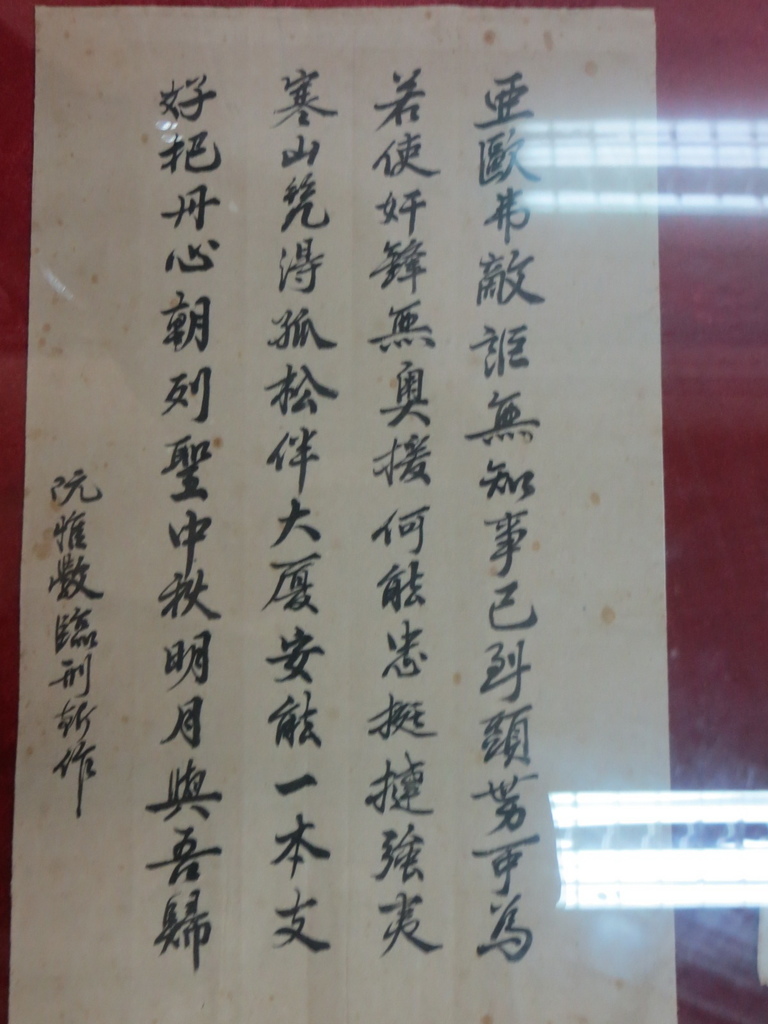 亞歐弗敵詎無知事已到頭劳可為
若使奸鋒無奥援何能忠挺撻強夷
寒山凭得孤松伴大厦安能一本支
好把丹心朝列聖中秋明月與吾歸
阮惟斆臨刑斬作